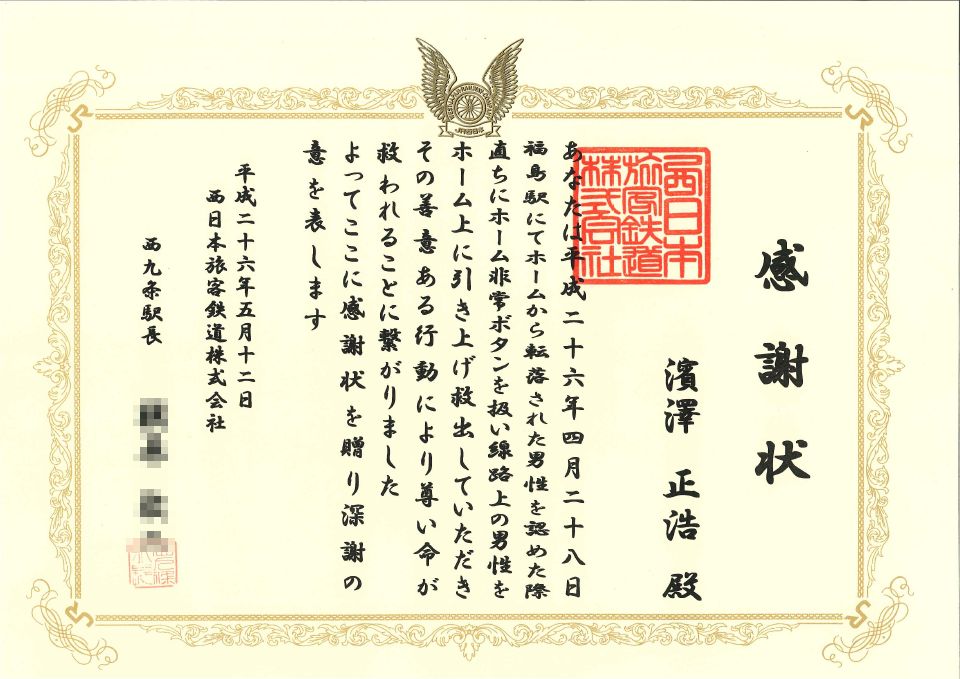 感謝状
濱澤 正浩 殿
あなたは平成二十六年四月二十八日
福島駅にてホームから転落された男性を認めた際
直ちにホーム非常ボタンを扱い線路上の男性を
ホーム上に引き上げ救出していただき
その善意ある行動により尊い命が
救われることに繋がりました
よってここに感謝状を贈り深謝の
意を表します
平成二十六年五月十二日
西日本旅客鉄道株式会社
西九条駅長
西日本
旅客鉄道
株式会社